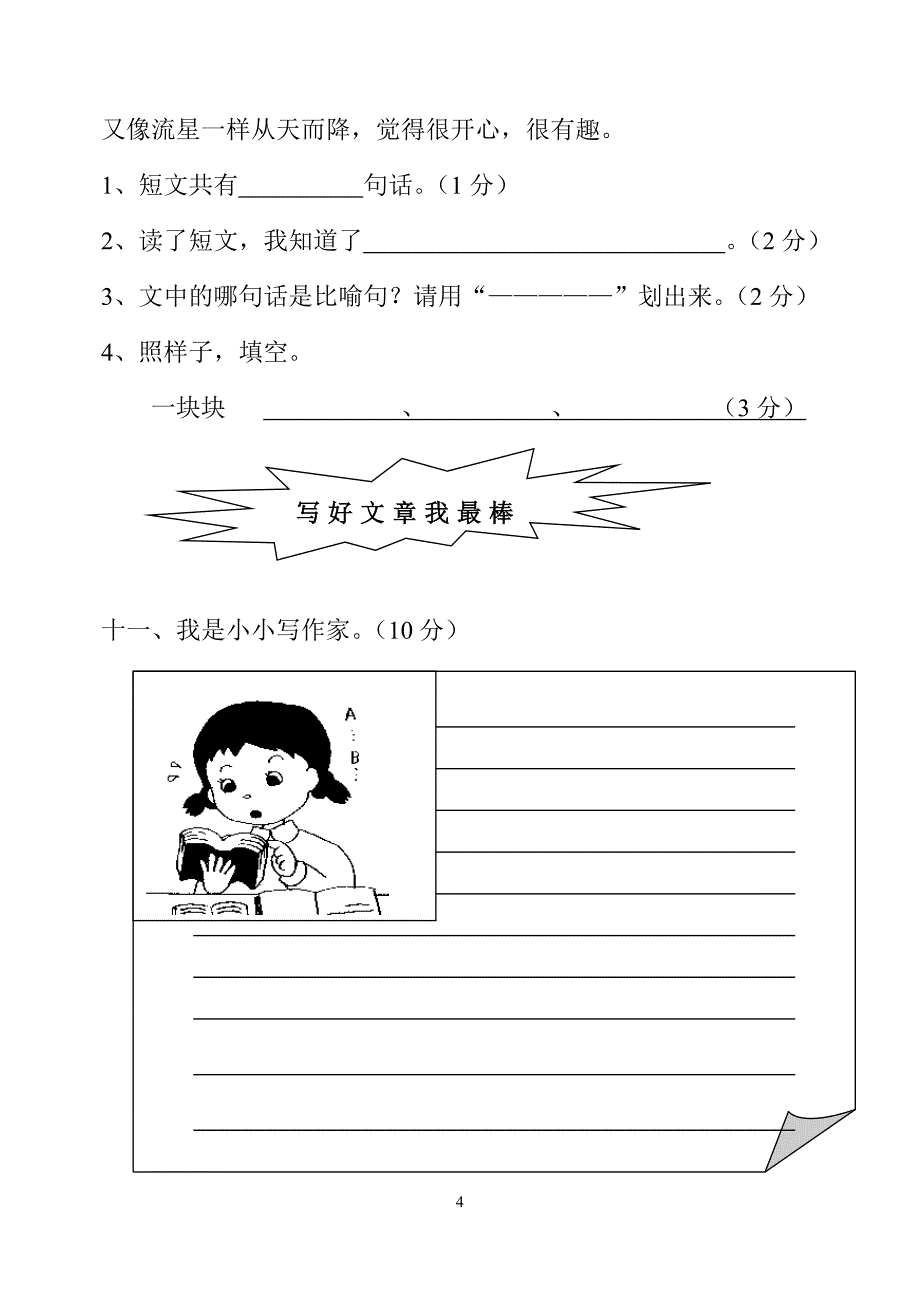 又像流星一样从天而降，觉得很开心，很有趣。
1、短文共有__________句话。（1分）
2、读了短文，我知道了_____________________________。（2分）
3、文中的哪句话是比喻句？请用“—————”划出来。（2分）
4、照样子，填空。
一块块 ___________、___________、____________（3分）
写好文章我最棒
十一、我是小小写作家。（10分）
A
B
4